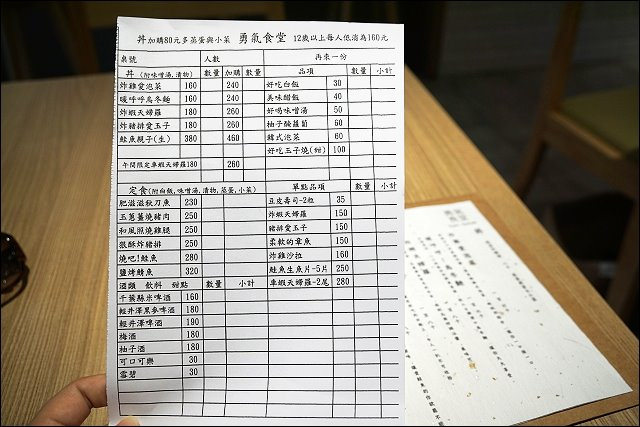 丼加購80元多蒸蛋與小菜 勇氣食堂 12歲以上每人低消為160元
桌號 人數 再來一份
丼(附味噌湯,漬物) 數量 加購 數量 品項 數量 小計
炸雞愛泡菜 160 240 好吃白飯 30
暖呼呼烏冬麵 160 240 美味醋飯 40
炸蝦天婦羅 180 260 好喝味噌湯 50
炸豬排愛玉子 180 260 柚子醃蘿蔔 60
鮭魚親子(生) 380 460 韓式泡菜 60
好吃玉子燒(甜) 100
午間限定車蝦天婦羅180 260
定食(附白飯,味噌湯,漬物,蒸蛋,小菜) 單點品項 數量 小計
肥滋滋秋刀魚 230 豆皮壽司-2粒 35
玉蔥薑燒豬肉 250 炸蝦天婦羅 150
和風照燒雞腿 250 豬排愛玉子 150
狠酥炸豬排 250 柔軟的章魚 150
燒吧!鮭魚 280 炸雞沙拉 160
鹽烤鯖魚 320 鮭魚生魚片-5片 250
酒類 飲料 甜點 數量 小計 車蝦天婦羅-2尾 280
千葉縣米啤酒 160
輕井澤黑麥啤酒 180
輕井澤啤酒 190
梅酒 180
柚子酒 180
可口可樂 30
雪碧 30